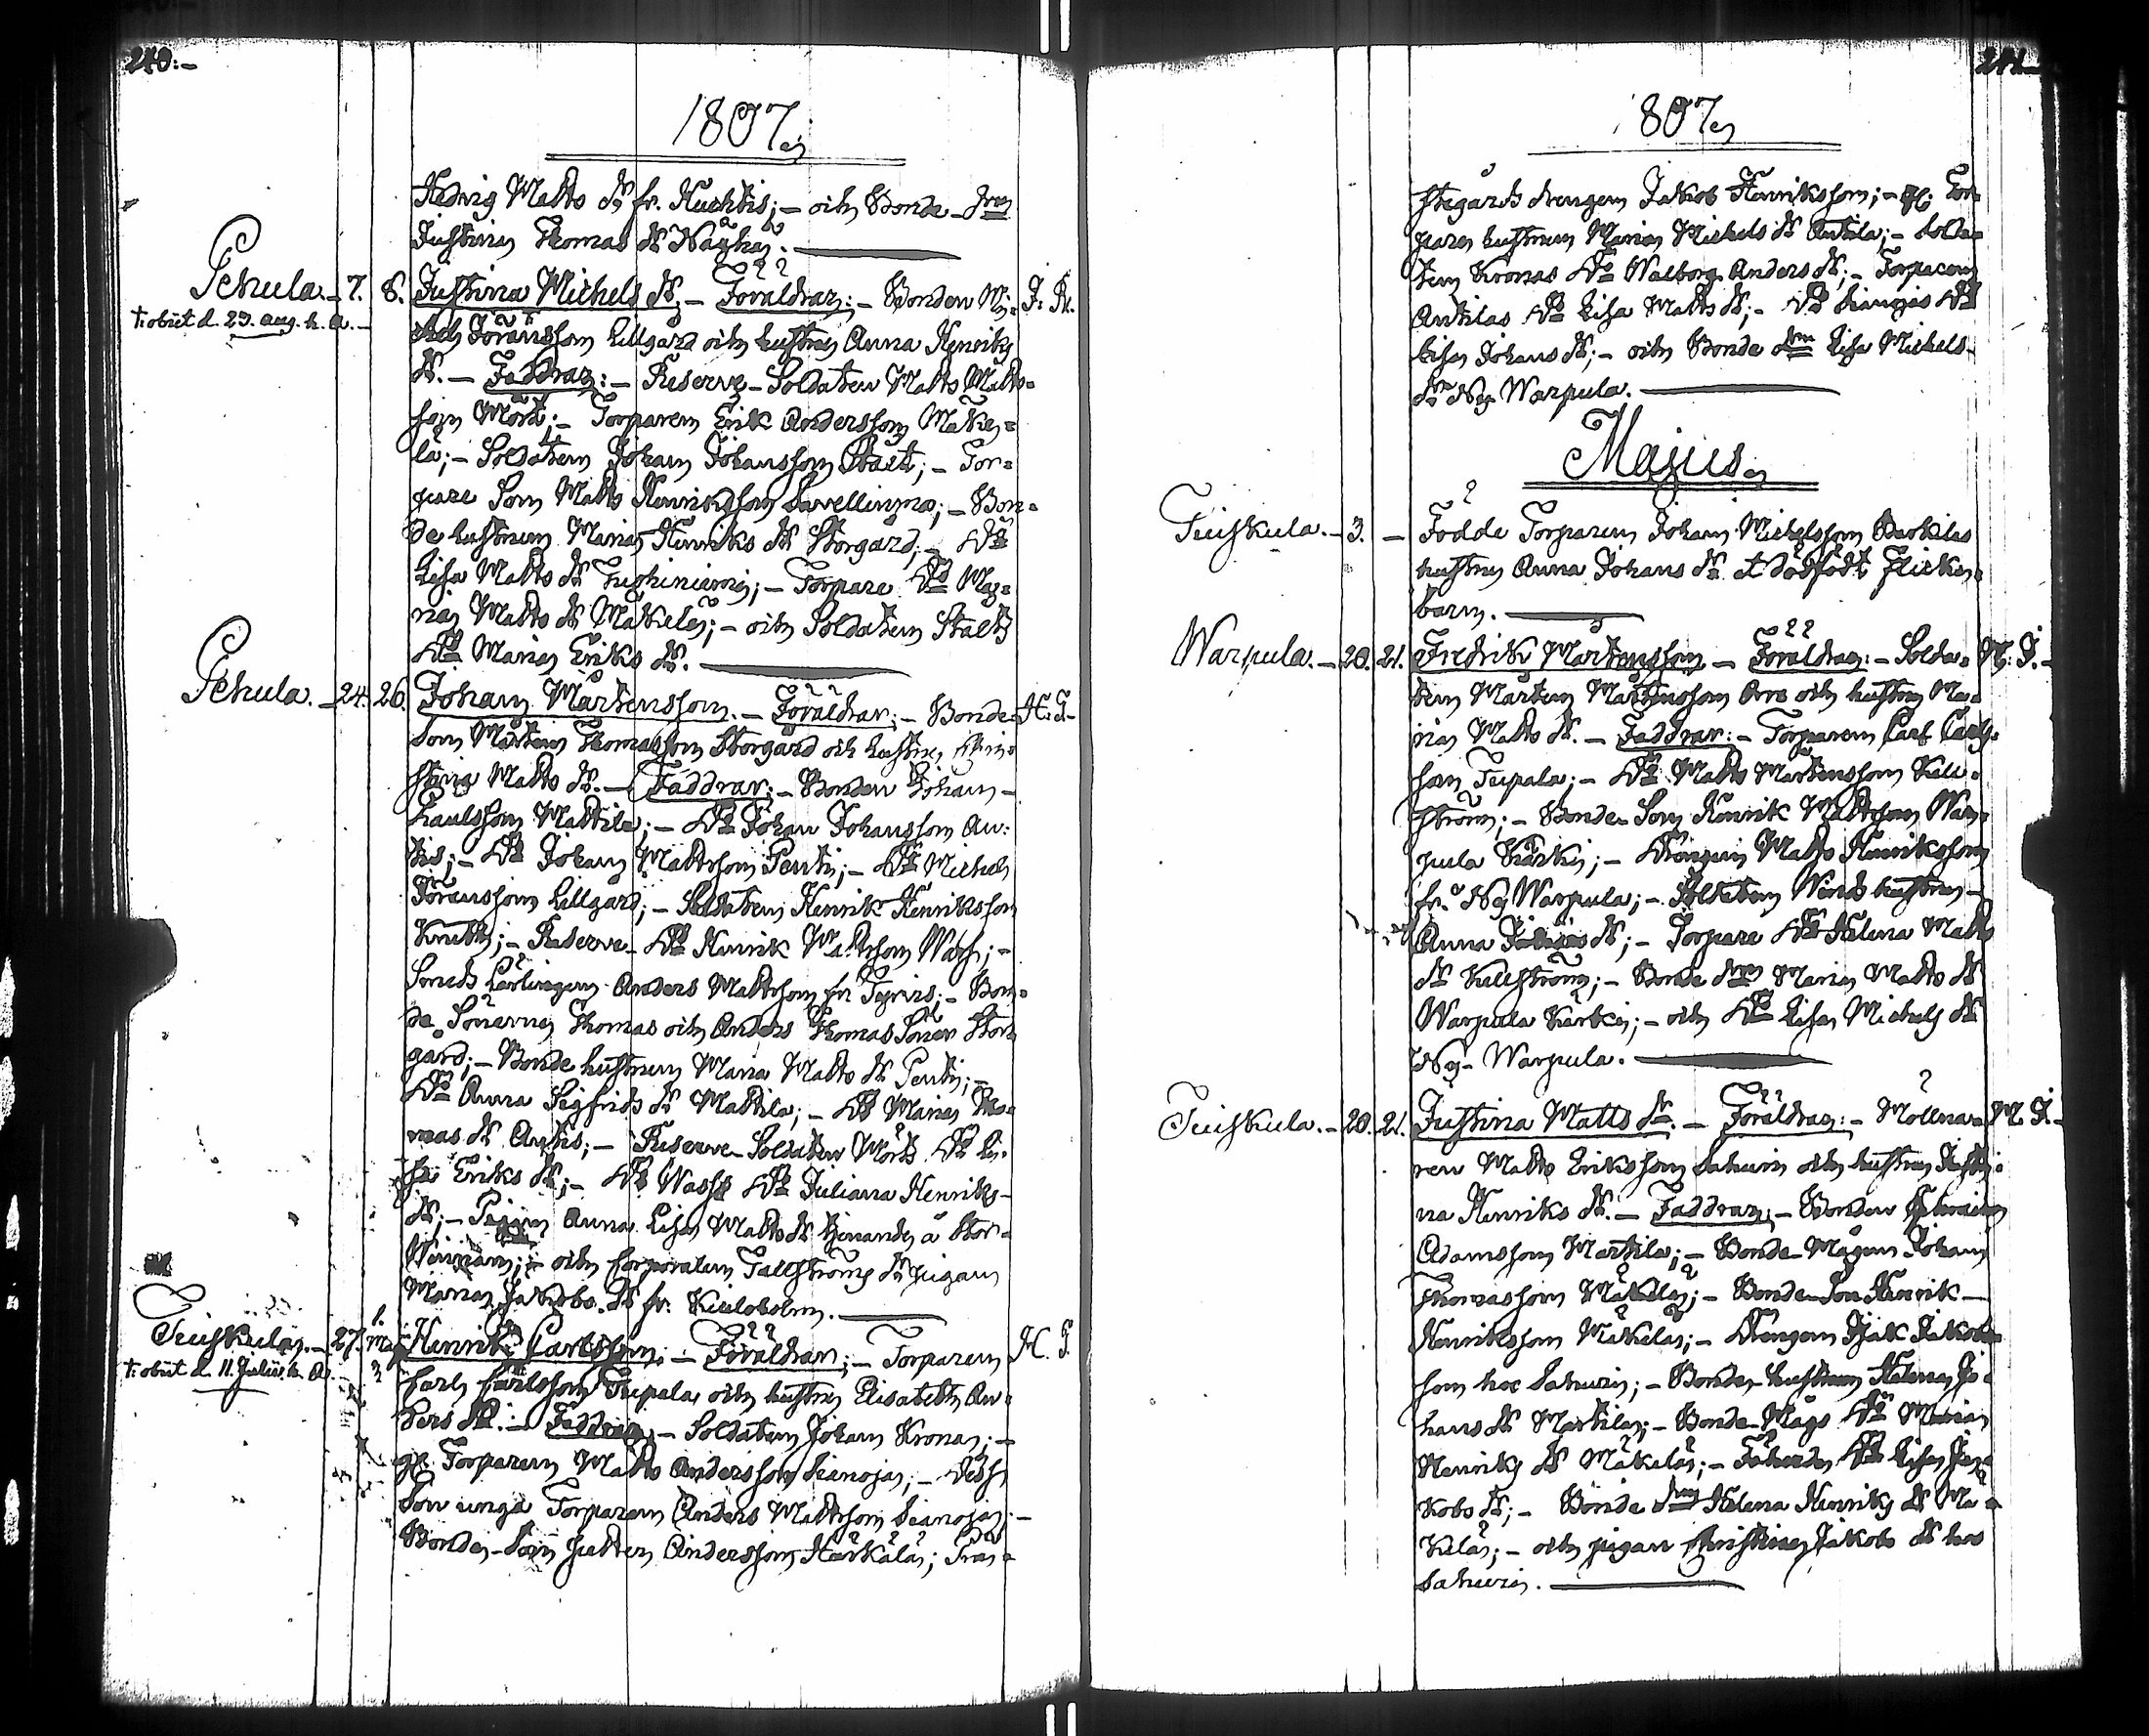 240:-
1807.
Hedvig Matts dr fr. Huchtis; - och Bonde
Justina Thomas dr
Pehula. - 7. 8. Justina Michels dr - Föräldrar: - Bonden Mi-
†: obiit d. 29. aug. h. a. -
chel Jöransson Lillgård och hustru Anna Henriks
dr. - Faddrar: - Reserve-Soldaten Matts Matts-
son Mört; - Torparen Erik Andersson Mäke-
lä; - Soldaten Johan Johansson Stält; - Tor-
pare Son Matts Henriksson; - Bon-
de hustrun Maria Henriks dr Storgård; - Do
Lisa Matts dr; - Torpare Do Ma-
ria Matts dr Mäkelä; - och Soldaten Stålts
Do Maria Eriks dr.
Pehula. - 24. 26. Johan Mårtensson. - Föräldrar: - Bonde- H. J.
Son Mårten Thomasson Storgård och hustru Chri-
stina Matts dr. - Faddrar: - Bonden Johan
Paulsson Mattila; - Do Johan Johansson An-
tis; - Do Johan Mattsson Pentti; - Do Michel
Jöransson Lillgård; - Soldaten Henrik Henriksson
Reserve Do Henrik Mattsson Wass; -
Smeds Lärlingen Anders Mattsson fr. - Bon-
de Sönerna Thomas och Anders Thomas Söner Stor-
gård; - Bonde hustrun Maria Matts dr Pentti; -
Do Anna Sigfrids dr Mattila; - Do Maria Tho-
mas dr Antis; - Reserve Soldaten Mörts Do Li-
sa Eriks dr; - Do Wass Do Juliana Henriks
dr; - Pigan Anna Lisa Matts dr tjenande å Stor-
och Corporalen Tallströms dr pigan
Maria Jakobs dr fr.
Tuiskula. - 27. Maj Henrik Carlsson. - Föräldrar; - Torparen H. J.
†: obiit d. 11. Julii h. a.
Carl Carlsson Tupala och hustru Elisabeth An-
ders dr: - Faddrar; - Soldaten Johan Kronas; -
gl. Torparen Matts Andersson Sianoja; - Dess
Son unga Torparen Anders Mattsson Sianoja; -
Bonde-Son Petter Andersson Härkälä; Präs-
241
1807.
stegårds drengen Jakob Henriksson; - gl. Tor-
paren hustrun Maria Michels dr Antila; - Solda-
ten Kronas Do Walborg Anders dr; - Torparen
Antilas Do Lisa Matts dr; - Do Sianojas Do
Lisa Johans dr; - och Bonde drn Lisa Michels
dr Ny Warpula.
Majus.
Tuiskula. - 3. - Födde Torparen Johan Michelsson Backilas
hustru Anna Johans dr et dödfödt Flicke-
barn.
Warpula. - 20. 21. Fredrik Mårtensson - Föräldrar: - Solda-
ten Mårten Mårtensson Orre och hustru Ma-
ria Matts dr. - Faddrar: - Torparen Carl Carls-
son Tupala; - Do Matts Mårtensson Käll-
ström; - Bonde-Son Henrik Mattsson War-
pula Kärki; - Drengen Matts Henriksson
fr. Ny Warpula; - Soldaten Winds hustru
Anna dr; - Torpare Do Helena Matts
dr Källström; - Bonde drn Maria Matts dr
Warpula Kärki; - och Do Lisa Michels dr
Ny-Warpula.
Tuiskula. - 20. 21. Justina Matts dr. - Föräldrar: - Möllna- M. J. -
ren Matts Eriksson Sahuri och hustru Justi-
na Henriks dr. - Faddrar; - Bonden Ephraim
Adamsson Martila; - Bonde-Mågen Johan
Thomasson Mäkelä; - Bonde-Son Henrik
Henriksson Mäkelä; - Drengen Isak Jakobs-
son hos Sahuri; - Bonde-hustrun Helena Jo-
hans dr Martila; - Bonde-Mågs Do Maria
Henriks dr Mäkelä; - Do Lisa Ja-
kobs dr; - Bonde drn Helena Henriks dr Mä-
kelä; - och pigan Christina Jakobs dr hos
Sahuri.